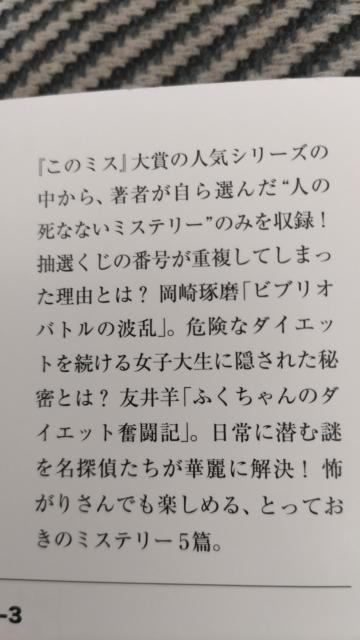 『このミス』大賞の人気シリーズの
中から、著者が自ら選んだ“人の
死なないミステリー”のみを収録！
抽選くじの番号が重複してしまっ
た理由とは？ 岡崎琢磨「ビブリオ
バトルの波乱」。危険なダイエッ
トを続ける女子大生に隠された秘
密とは？ 友井羊「ふくちゃんのダ
イエット奮闘記」。日常に潜む謎
を名探偵たちが華麗に解決！ 怖
がりさんでも楽しめる、とってお
きのミステリー5篇。
-3